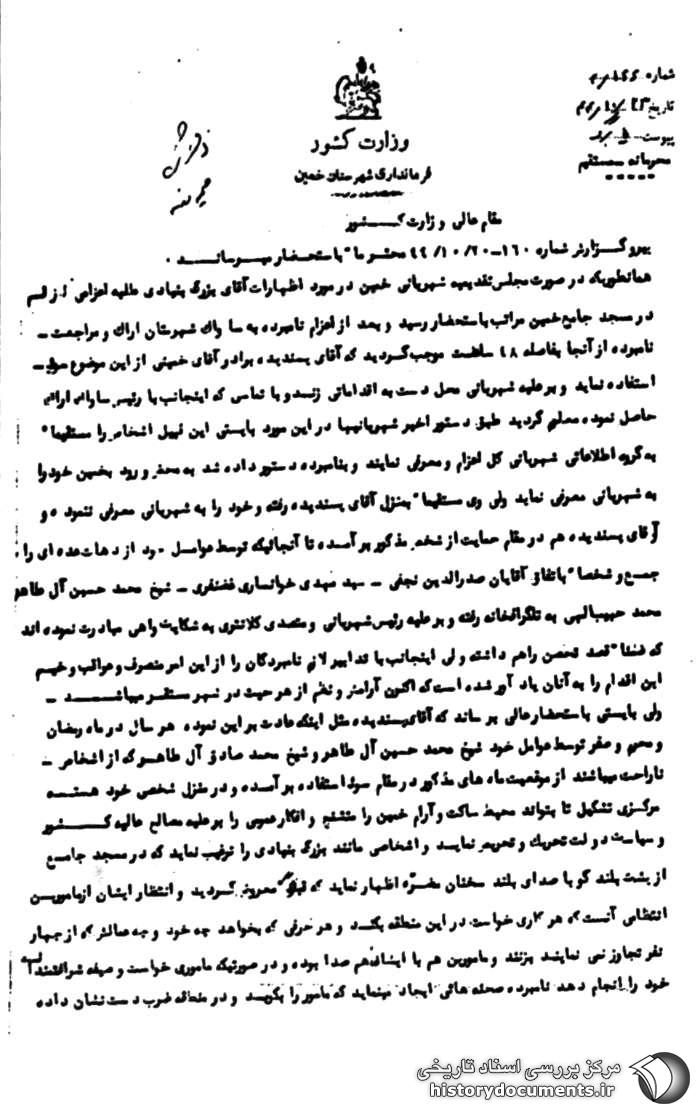 شماره
تاریخ
پیوست
محرمانه مستقیم
وزارت کشور
فرمانداری شهرستان خمین
مقام عالی وزارت کشور
پیرو گزارش شماره ۱۶۰-۴۴/۱۰/۲۰ محترما" باستحضار میرساند.
همانطوریکه در صورت مجلس تقدیمیه شهربانی خمین در مورد اظهارات آقای بزرگ بنیادی طلبه اعزامی از قم
در مسجد جامع خمین مراتب باستحضار رسید و بعد از اعزام نامبرده به ساواک شهرستان اراک و مراجعت -
نامبرده از آنجا بفاصله ۴۸ ساعت موجب گردید که آقای پسندیده برادر آقای خمینی از این موضوع سوء -
استفاده نماید و بر علیه شهربانی محل دست به اقداماتی زند و با تماسی که اینجانب با رئیس ساواک اراک
حاصل نموده معلوم گردید طبق دستور اخیر شهربانیها در این مورد بایستی این قبیل اشخاص را مستقیما"
به گروه اطلاعاتی شهربانی کل اعزام و معرفی نمایند و بنامبرده دستور داده شد به محض ورود بخمین خود را
به شهربانی معرفی نماید ولی وی مستقیما" بمنزل آقای پسندیده رفته و خود را به شهربانی معرفی ننموده و
آقای پسندیده هم در مقام حمایت از شخص مذکور برآمده تا آنجائیکه توسط عوامل خود از دهات عده ای را
جمع و شخصا" باتفاق آقایان صدرالدین نجفی - سید مهدی خوانساری غضنفری - شیخ محمد حسین آل طاهر
محمد حبیب الهی به تلگرافخانه رفته و بر علیه رئیس شهربانی و متصدی کلانتری به شکایت واهی مبادرت نموده اند
که ضمنا" قصد تحصن را هم داشته ولی اینجانب با تدابیر لازم نامبردگان را از این امر منصرف و عواقب وخیم
این اقدام را به آنان یاد آور شده است که اکنون آرامش و نظم از هر حیث در شهر مستقر میباشد -
ولی بایستی باستحضار عالی برساند که آقای پسندیده مثل اینکه عادت بر این نموده هر سال در ماه رمضان
و محرم و صفر توسط عوامل خود شیخ محمد حسین آل طاهر و شیخ محمد صادق آل طاهر که از اشخاص -
ناراحت میباشند از موقعیت ماه های مذکور در مقام سوء استفاده برآمده و در منزل شخصی خود هسته
مرکزی تشکیل تا بتواند محیط ساکت و آرام خمین را متشنج و افکار عمومی را بر علیه مصالح عالیه کشور
و سیاست دولت تحریک و تحریص نماید و اشخاصی مانند بزرگ بنیادی را ترغیب نماید که در مسجد جامع
از پشت بلند گو با صدای بلند سخنان مضره اظهار نماید که قبلا" معروض گردید و انتظار ایشان از مامورین
انتظامی آنست که هر کاری خواست در این منطقه بکند و هر حرفی که بخواهد چه خود و چه عمالش که از چهار
نفر تجاوز نمی نمایند بزنند و مامورین هم با ایشان هم صدا بوده و در صورتیکه ماموری خواست وظیفه شرافتمندانه
خود را انجام دهد نامبرده صحنه هائی ایجاد مینماید که مامور را بکوبد و در منطقه ضرب دست نشان داده
مرکز بررسی اسناد تاریخی
historydocuments.ir